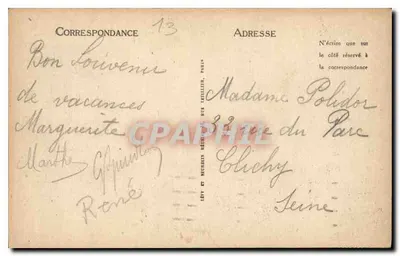 CORRESPONDANCE
13
Bon Souvenir
de vacances
Marguerite
Marthe
René
ADRESSE
N'écrire que sur
le côté réservé à
la correspondance
Madame Polidor
33 rue du Parc
Clichy
Seine
CPARAMA
LÉVY ET NEURDEIN RÉUNIS
PARIS